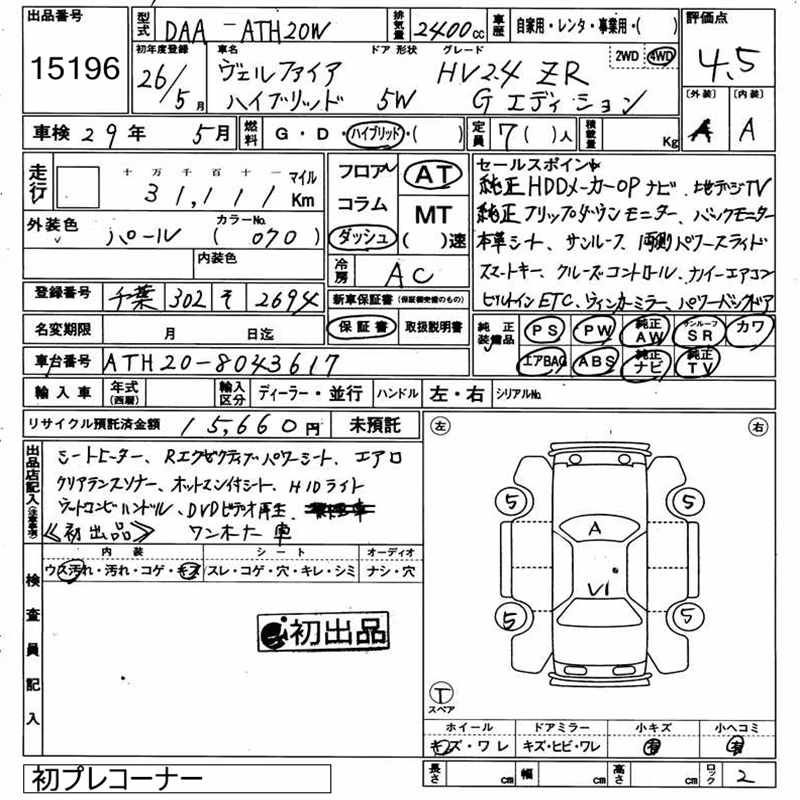 出品番号 型式 DAA-ATH20W 排気量 2400cc 車歴 自家用・レンタ・事業用・( ) 評価点
15196 4.5
初年度登録 26/5月 車名 ヴェルファイア ハイブリッド ドア 形状 5W グレード HV2.4 ZR Gエディション 2WD 4WD
[外装] A [内装] A
車検 29年 5月 燃料 G・D・ハイブリッド・( ) 定員 7( )人 積載量 Kg
走行 十万千百十一 31,111 マイル Km
外装色 パール カラーNo. (070)
内装色
フロア AT
コラム MT
ダッシュ ( )速
冷房 AC
セールスポイント
純正HDDメーカーOPナビ、地デジTV
純正フリップダウンモニター、バックモニター
本革シート、サンルーフ、両側パワースライド
スマートキー、クルーズコントロール、ナノイーエアコン
ビルトインETC、ウィンカーミラー、パワーバックドア
登録番号 千葉 302 そ 2694
新車保証書(保証継続後のもの)
名変期限 月 日迄
保証書 取扱説明書
純正装備品 PS PW 純正AW サンルーフSR カワ
エアBAG ABS 純正ナビ 純正TV
車台番号 ATH20-8043617
輸入車 年式(西暦) 輸入区分 ディーラー・並行 ハンドル 左・右 シリアルNo.
リサイクル預託済金額 15,660円 未預託
出品店記入(注意事項)
シートヒーター、Rエグゼクティブパワーシート、エアロ
クリアランスソナー、オットマン付シート、HIDライト
ウッドコンビハンドル、DVDビデオ再生、
≪初出品≫ ワンオーナー車
検査員記入
内装 シート オーディオ
ウス汚れ・汚れ・コゲ・キズ スレ・コゲ・穴・キレ・シミ ナシ・穴
初出品
左 右
5 5
A
V1
5 5
T
スペア
ホイール ドアミラー 小キズ 小ヘコミ
キズ・ワレ キズ・ヒビ・ワレ 有 有
長さ cm 幅 cm 高さ cm ロック 2
初プレコーナー